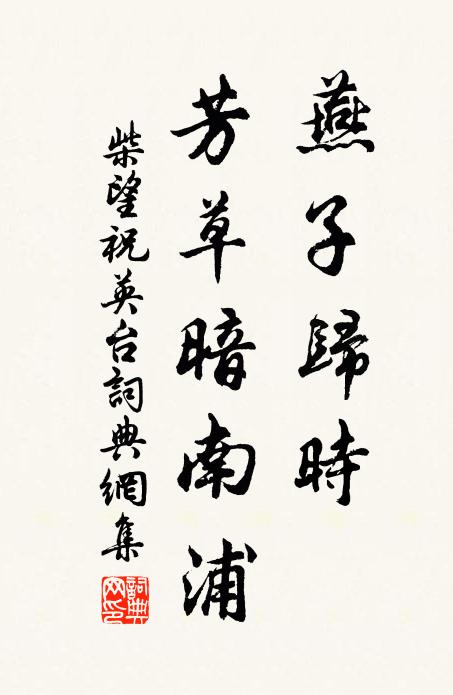 燕子歸時
芳草暗南浦
柴望祝英台詞典網集
詞典网印